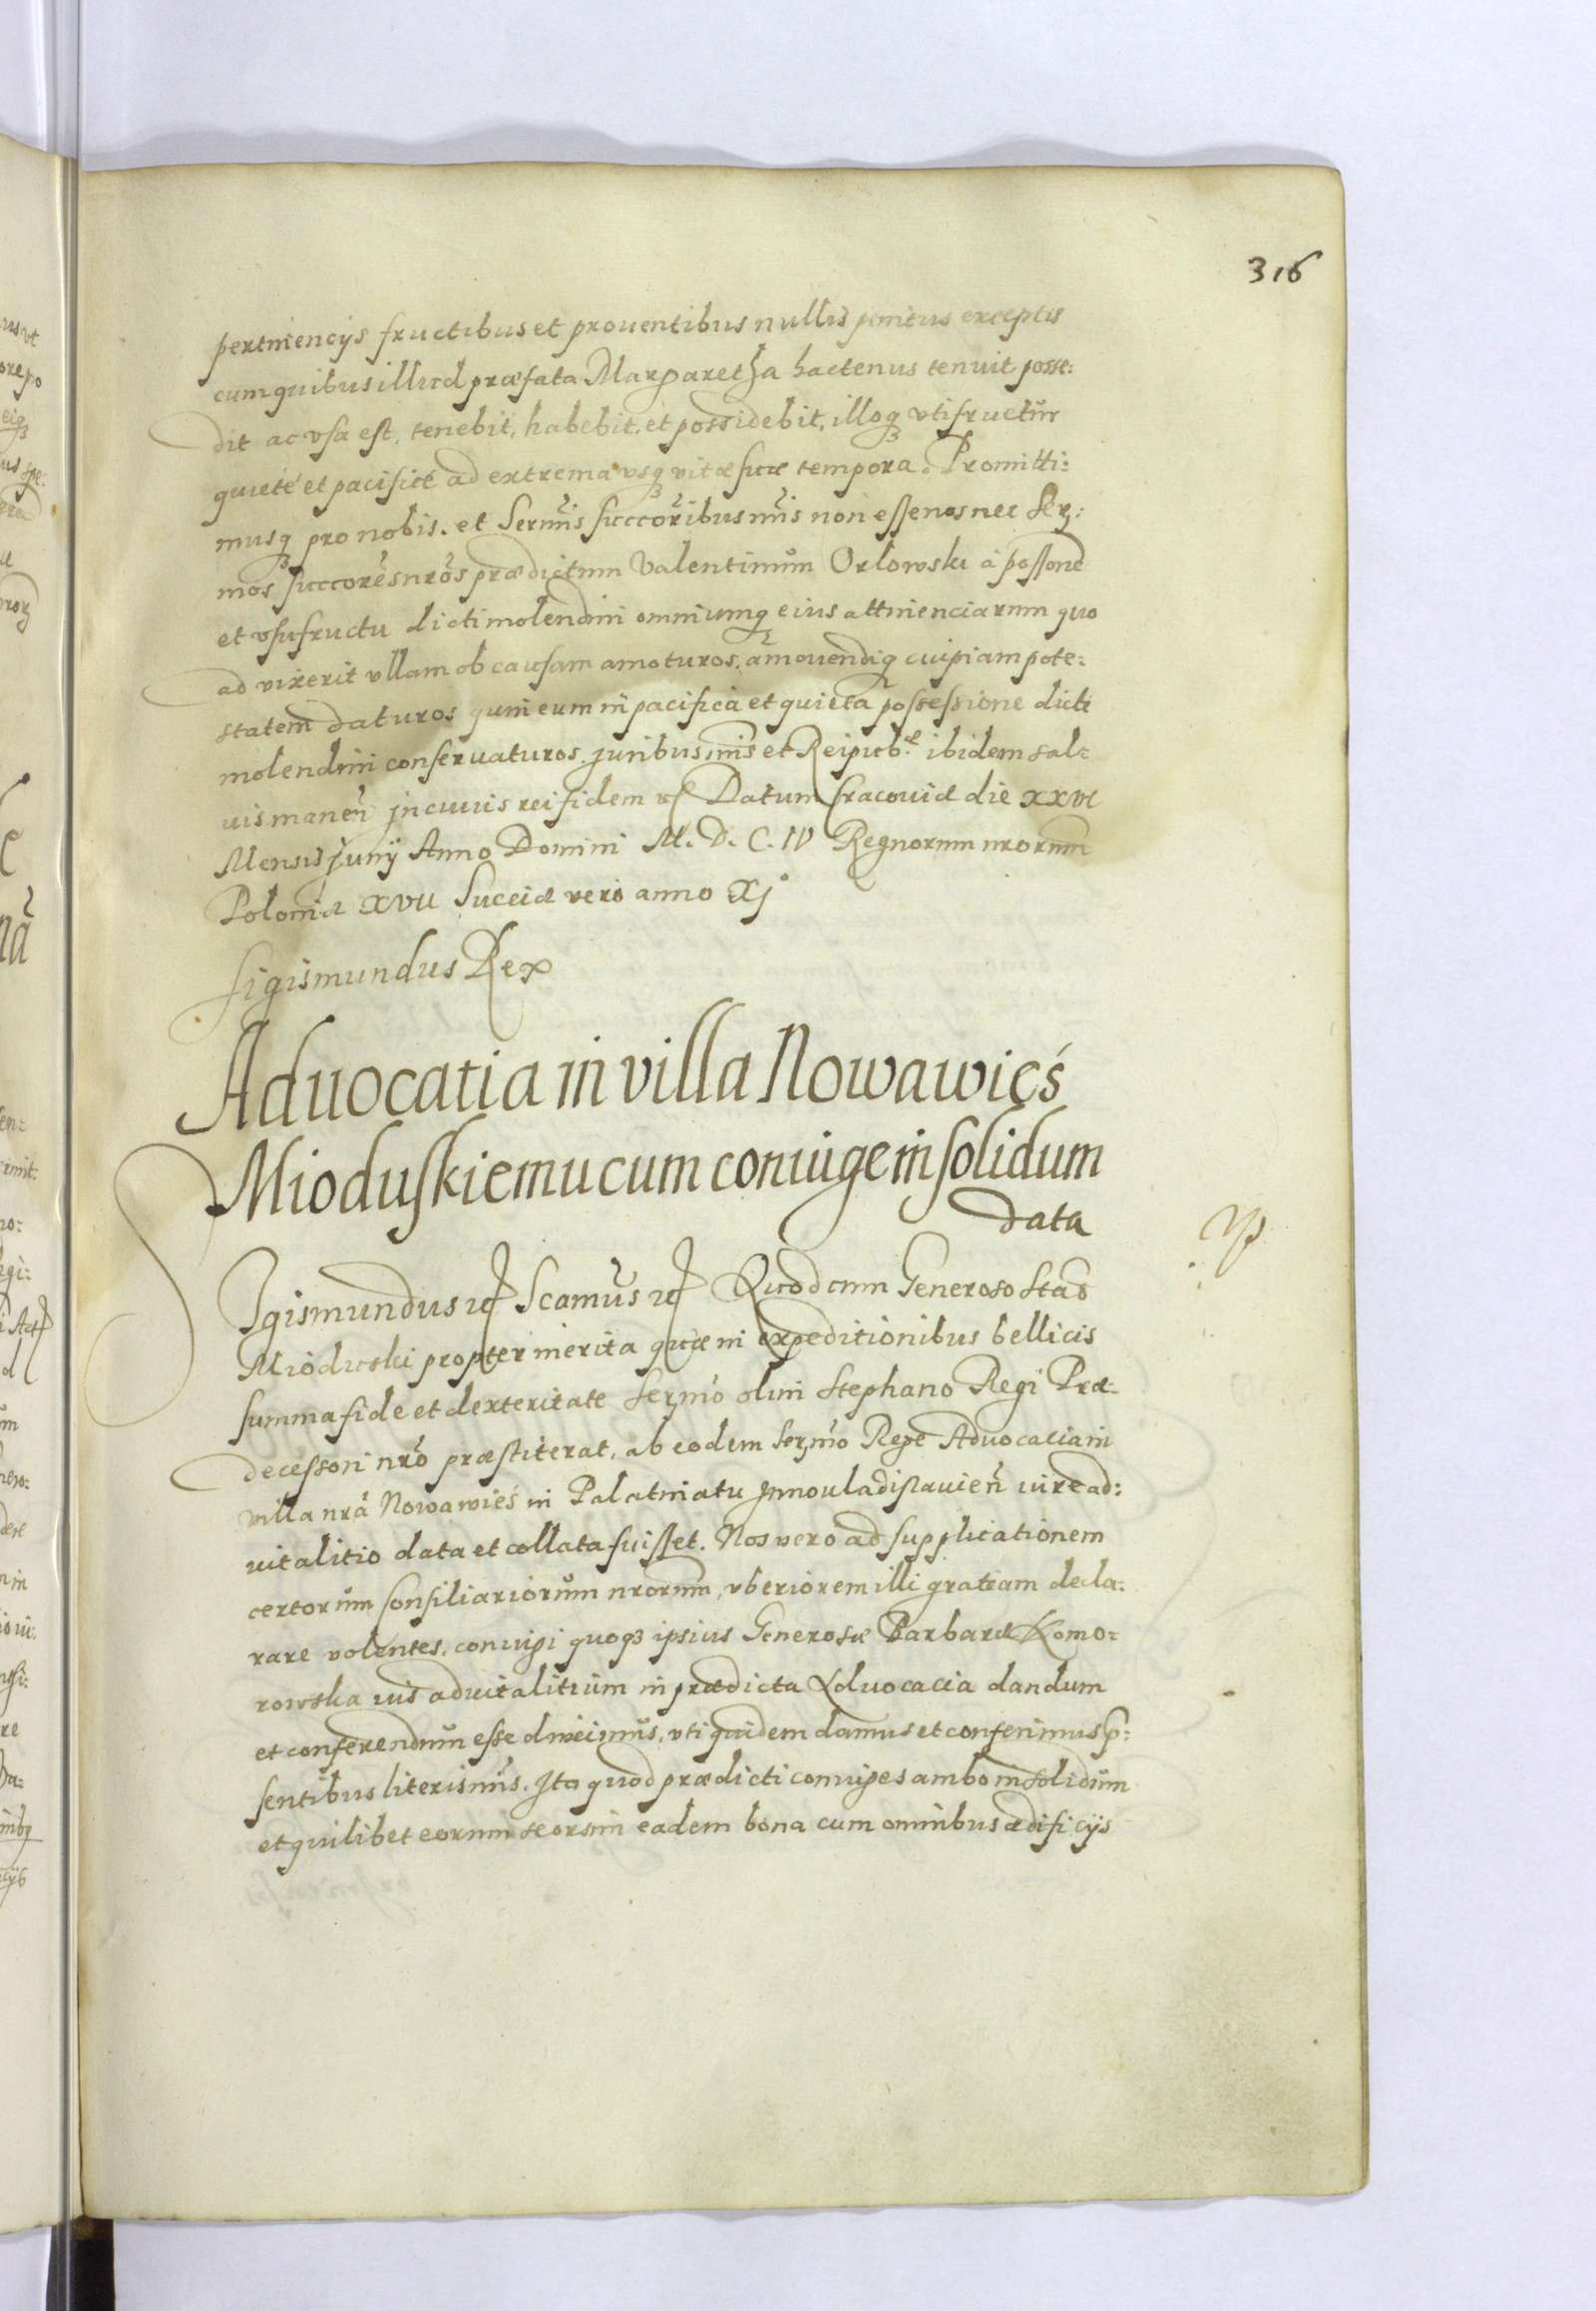 316
pertinencijs fructibus et prouentibus nullis penitus exceptis
cum quibus illud præfata Margaretha hactenus tenuit posse:
dit ac vsa est, tenebit, habebit, et possidebit, illoq vtifruetur
quiete et pacifice ad extrema vsq vitæ suæ tempora. Promitti:
musq pro nobis. et Sermis succoribus nris non esse nos nec Ser:
mos succores nros prædictum Valentinum Orlowski à possone
et vsufructu dicti molendini omniumq eius attinenciarum quo
ad vixerit vllam ob causam amoturos, amouendiq cuipiam pote:
statem daturos quin eum in pacifica et quieta possessione dicti
molendini conseruaturos. juribus nris et Reipub: ibidem sal:
uis manen jn cuius rei fidem Datum Cracouiæ die xxvi
Mensis Junij Anno Domini M. D. C. IV Regnorum nrorum
Poloniæ XVII Sueciæ vero anno XJ
Sigismundus Rex
Aduocatia in villa Nowawieś
Mioduskiemu cum coniuge in solidum
data
Sigismundus Scamus Quod cum Generoso Stao
Mioduski propter merita quæ in expeditionibus bellicis
summa fide et dexteritate Sermo olim Stephano Regi Præ:
decessori nro præstiterat, ab eodem Sermo Rege Aduocatia in
villa nra Nowawieś in Palatinatu Jnnouladislauien iure ad:
uitalitio data et collata fuisset. Nos vero ad supplicationem
certorum Consiliariorum nrorum, vberiorem illi gratiam decla:
rare volentes, coniugi quoq ipsius Generosæ Barbaræ Komo:
rowska ius aduitalitium in prædicta Aduocacia dandum
et conferendum esse duximus, vti quidem damus et conferimus p:
sentibus literis nris. Jta quod prædicti coniuges ambo in solidum
et quilibet eorum seorsim eadem bona cum omnibus ædificijs